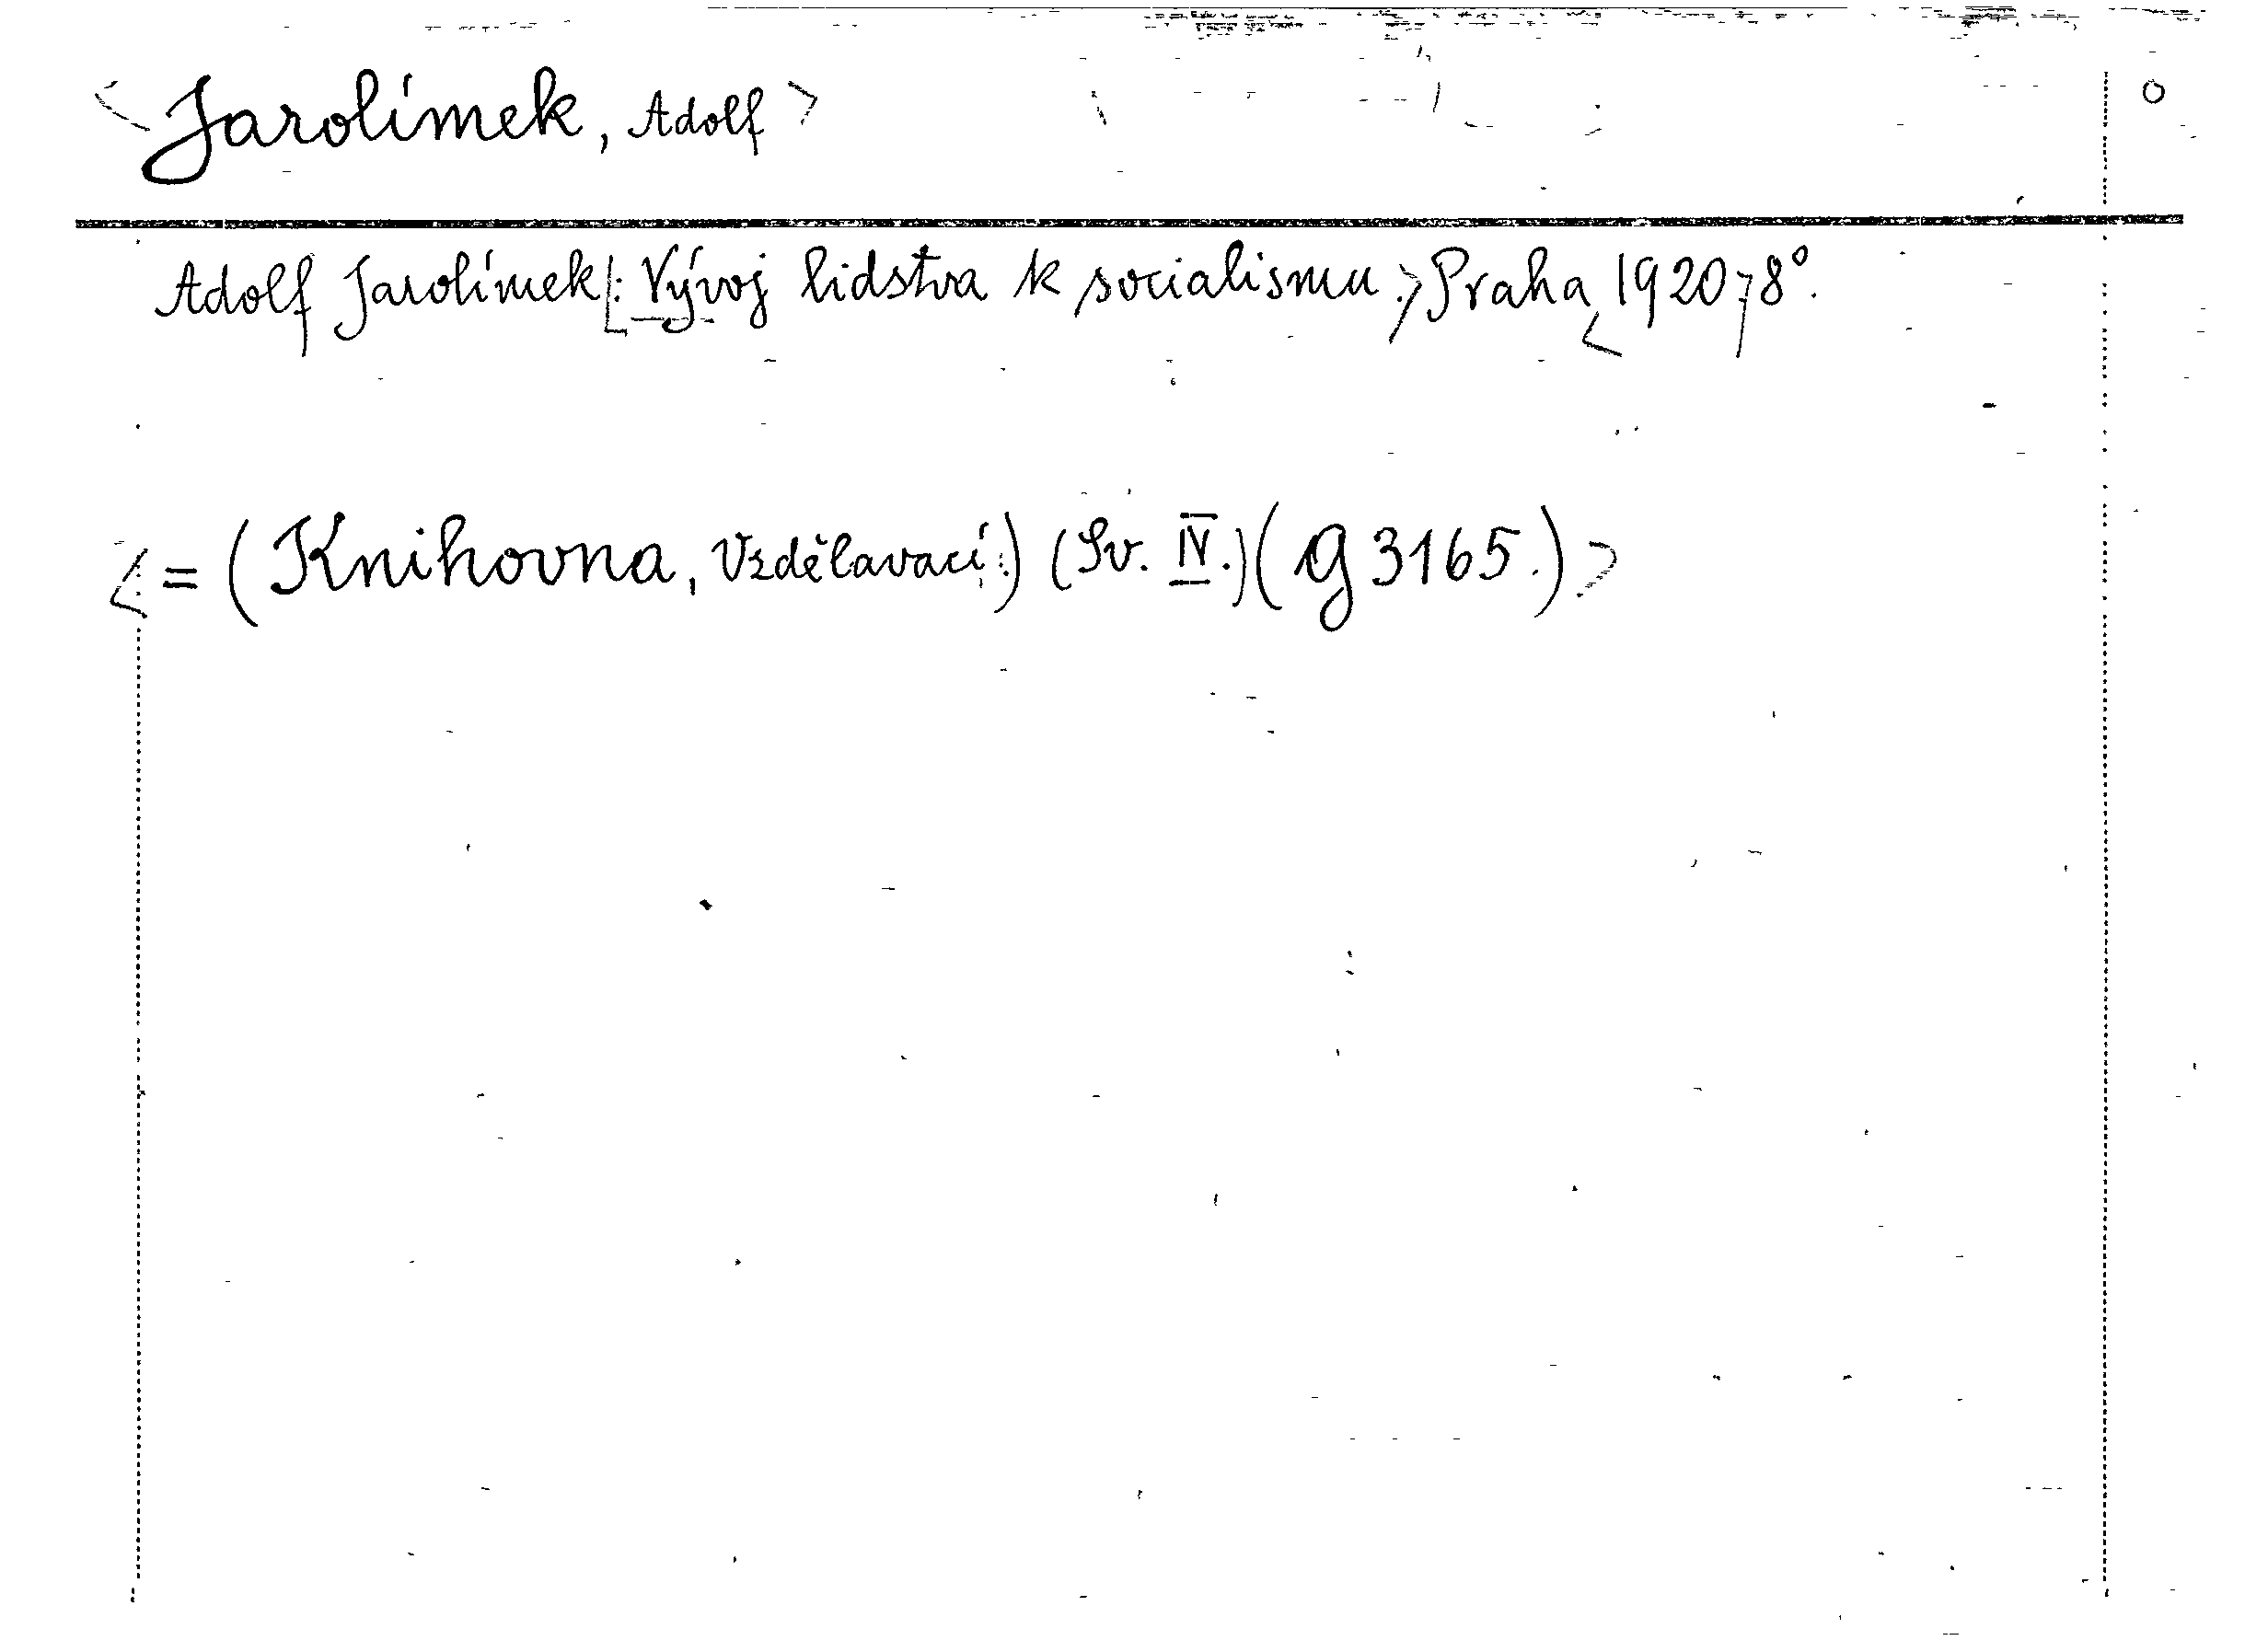 <Jarolímek, Adolf>
Adolf Jarolímek[: Vývoj lidstva k socialismu.> Praha <1920> 8°.
<= (Knihovna, Vzdělavací:) (Sv. IV.) (g 3165.)>